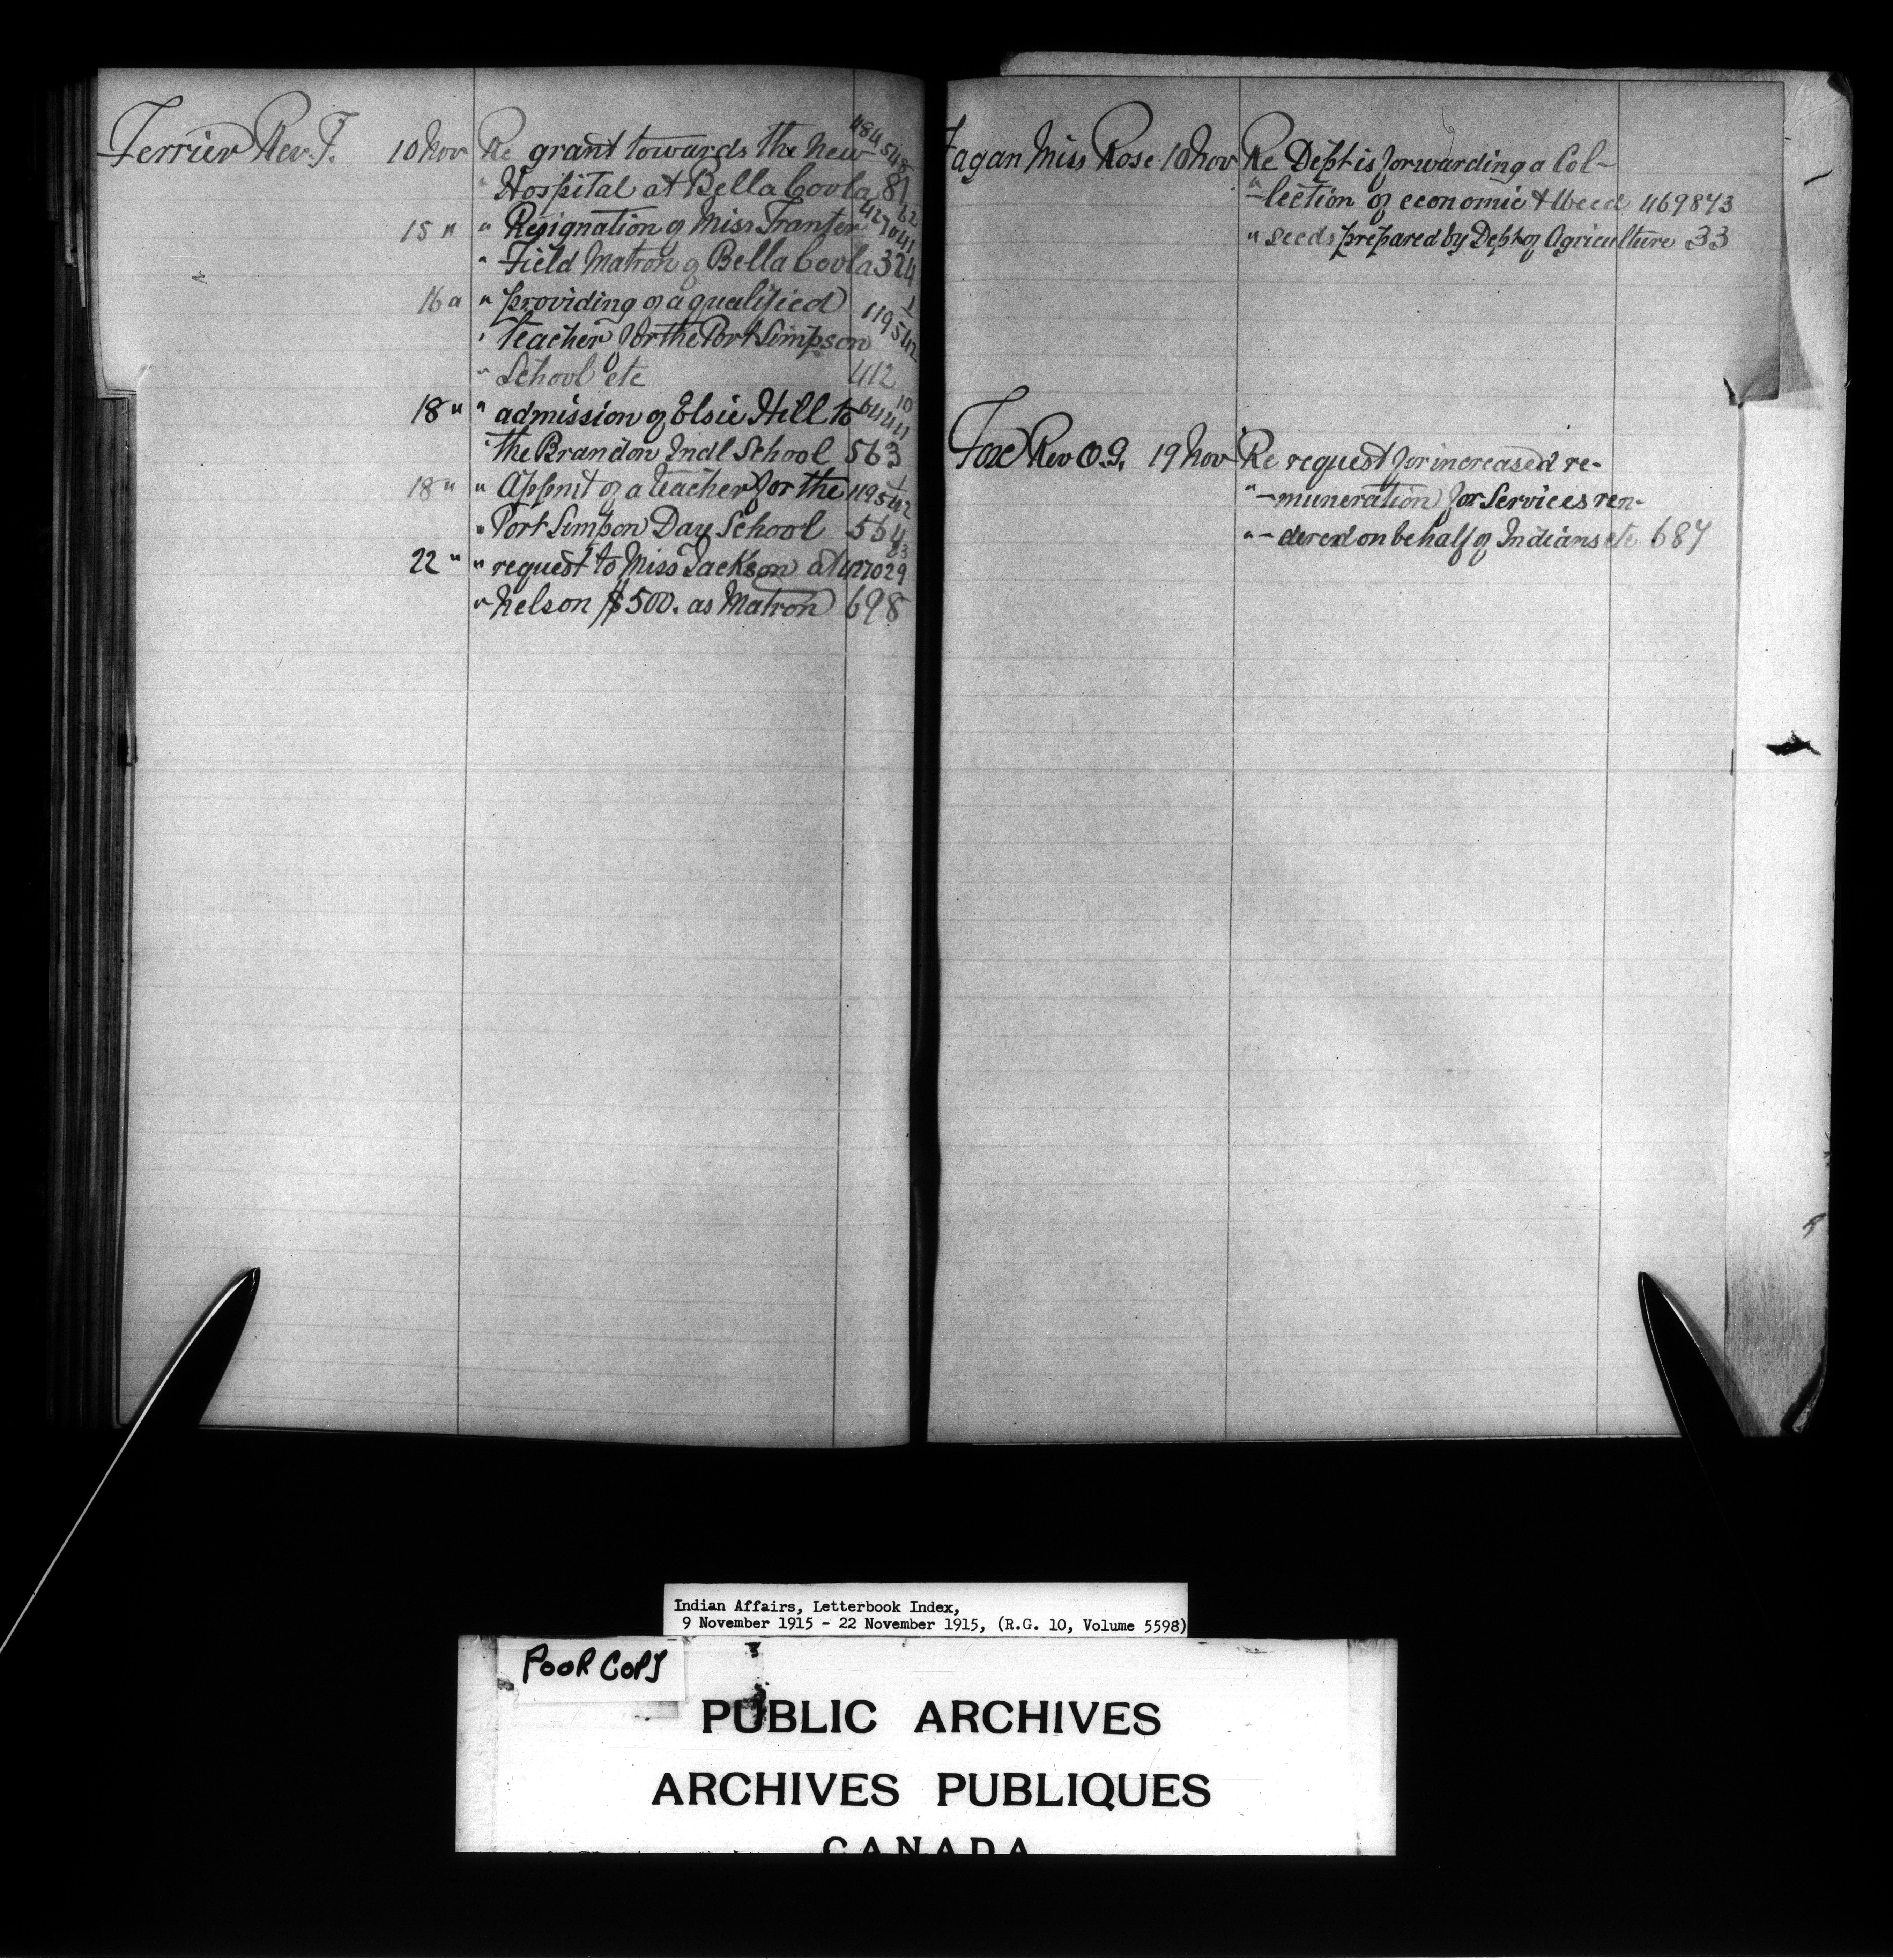 Ferrier Rev. T. 10 Nov Re grant towards the New 484548
" Hospital at Bella Coola 81
15 " " Resignation of Miss Tranter 427041 62
" Field Matron of Bella Coola 324
16 " " providing of a qualified 1
" teacher for the Port Simpson 119542
" School etc 412
18 " " admission of Elsie Hill to 64441 10
" the Brandon Indl School 563
18 " " Appmt of a teacher for the 119542 1
" Port Simpson Day School 564
22 " " request to Miss Jackson at 427029 83
" Nelson $500. as Matron 698
Fagan Miss Rose 10 Nov Re Dept is forwarding a Col-
" -lection of economic & Weed 469873
" seeds prepared by Dept of Agriculture 33
Fox Rev O.G. 19 Nov Re request for increased re-
" -muneration for Services ren-
" -dered on behalf of Indians etc 687
Indian Affairs, Letterbook Index,
9 November 1915 - 22 November 1915, (R.G. 10, Volume 5598)
POOR COPY
PUBLIC ARCHIVES
ARCHIVES PUBLIQUES
CANADA